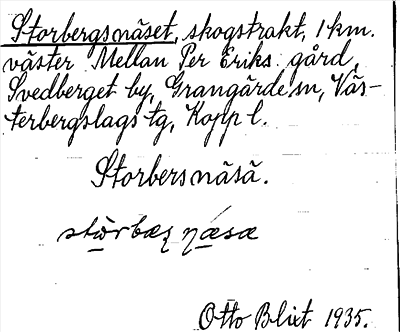 Storbergsnäset, skogstrakt, 1 km.
väster Mellan Per Eriks gård,
Svedberget by, Grangärde sn, Väs-
terbergslags tg, Kopp l.
Storbersnäsä.
Otto Blixt 1935.